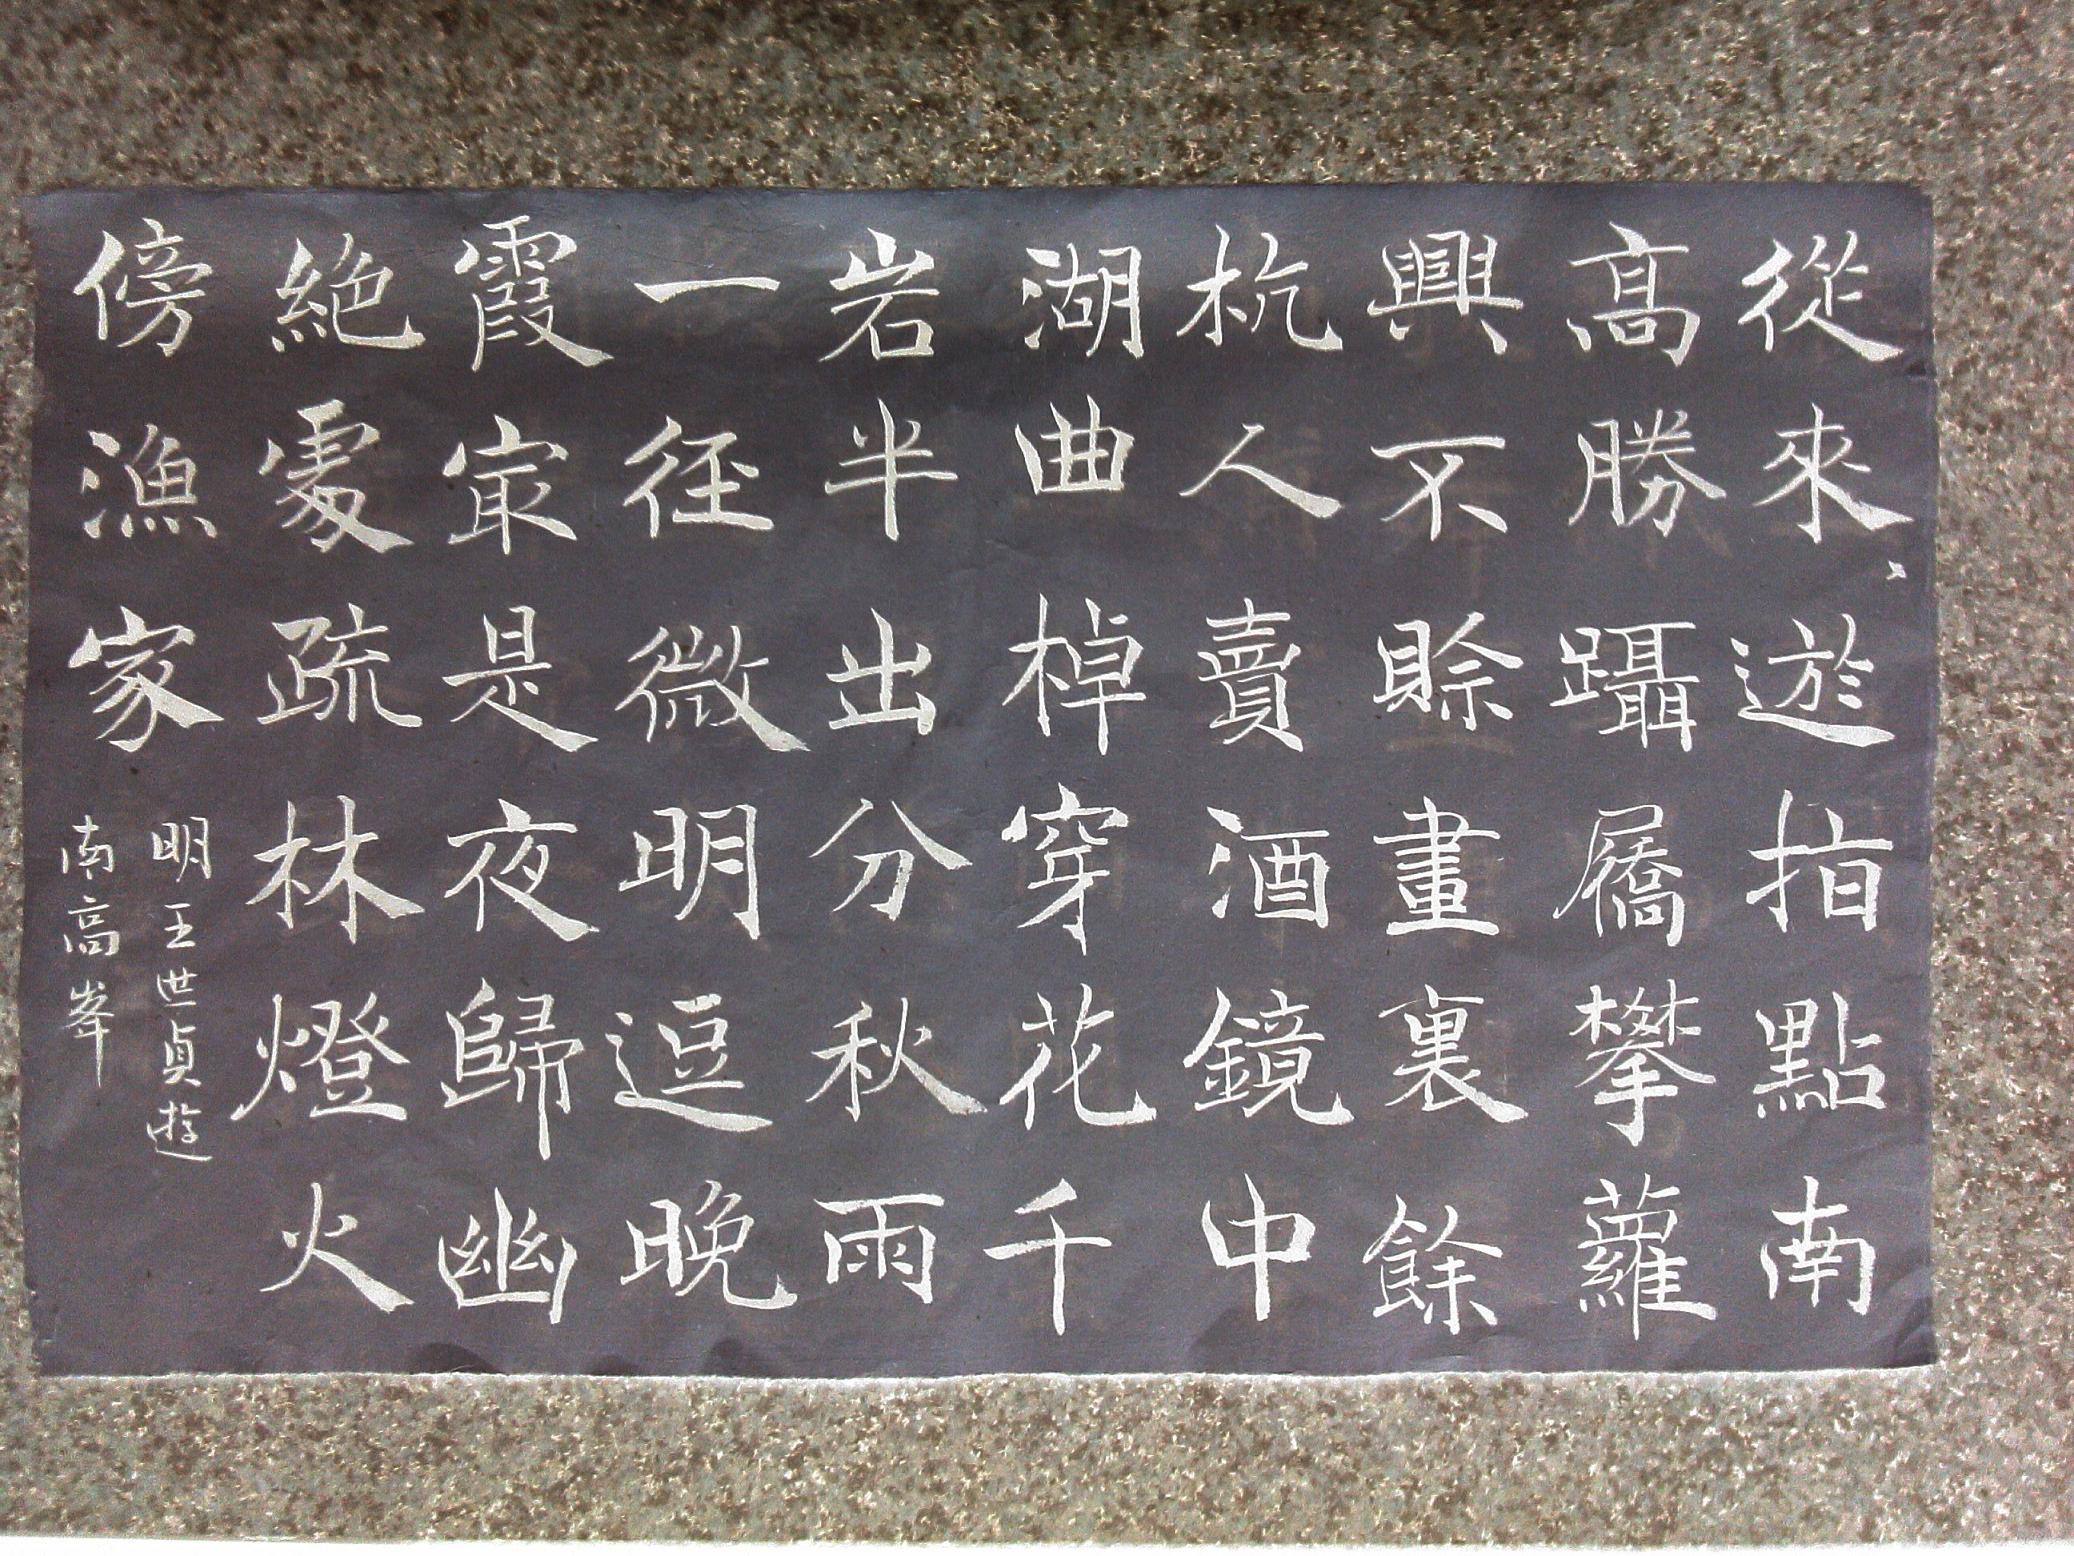 從來遊指點南
高勝躡屩攀蘿
興不賒畫裏餘
杭人賣酒鏡中
湖曲棹穿花千
岩半出分秋雨
一徑微明逗晚
霞冣是夜歸幽
絕處疏林燈火
傍漁家
明王世貞遊
南高峯